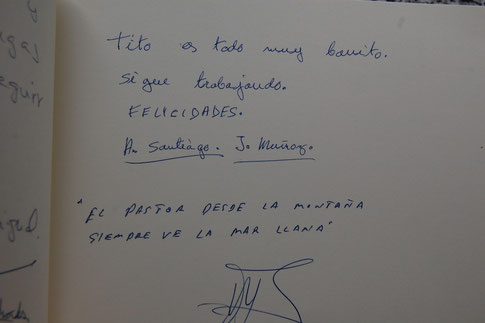 Tito es todo muy bonito.
Sigue trabajando.
FELICIDADES.
A. Santiago. J. Muñoz.
"EL PASTOR DESDE LA MONTAÑA
SIEMPRE VE LA MAR LLANA"